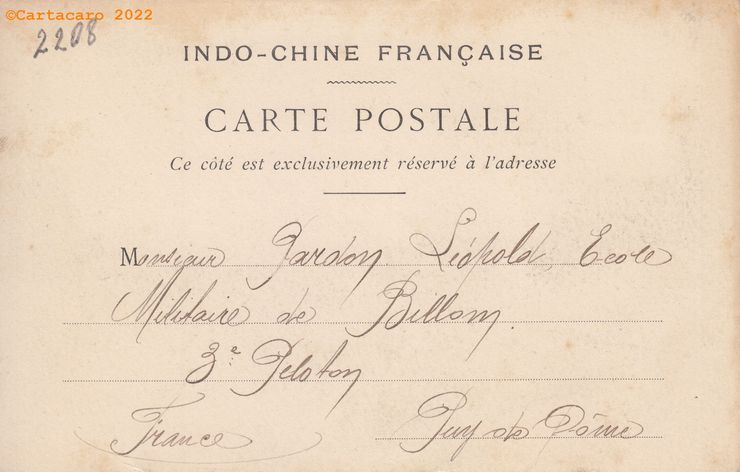 ©Cartacaro 2022
2208
INDO-CHINE FRANÇAISE
CARTE POSTALE
Ce côté est exclusivement réservé à l'adresse
Monsieur Jardon Léopold, Ecole
Militaire de Billom.
3e Peloton
France Puy de Dôme